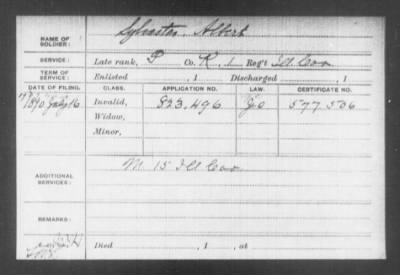 NAME OF SOLDIER: Sylvester, Albert
SERVICE: Late rank, P Co. K, 1 Reg't Ill Cav
TERM OF SERVICE: Enlisted , 1 Discharged , 1
DATE OF FILING. CLASS. APPLICATION NO. LAW. CERTIFICATE NO.
1890 July 16 Invalid, 823,496 577,506
Widow,
Minor,
ADDITIONAL SERVICES: M. 15 Ill Cav
REMARKS:
Died , 1 , at